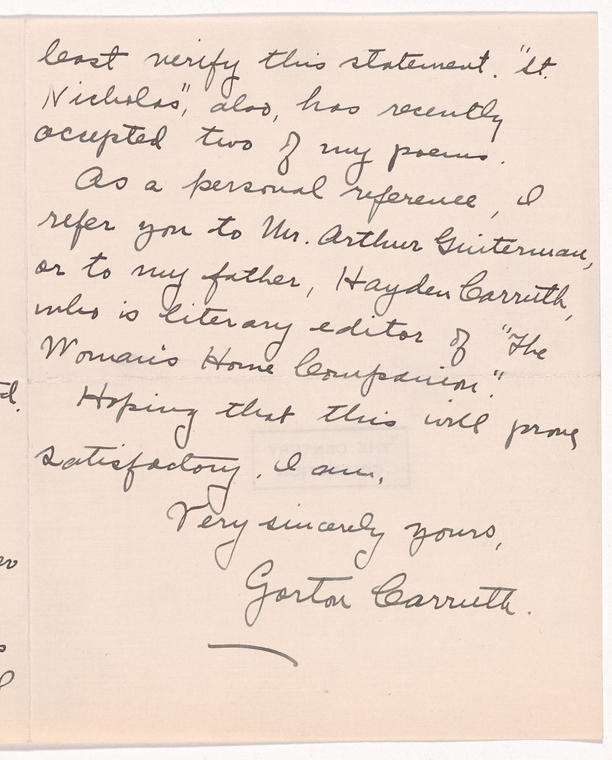 least verify this statement. "St.
Nicholas", also, has recently
accepted two of my poems.
As a personal reference, I
refer you to Mr. Arthur Guiterman,
or to my father, Hayden Carruth,
who is literary editor of "The
Woman's Home Companion".
Hoping that this will prove
satisfactory, I am,
Very sincerely yours,
Gorton Carruth.